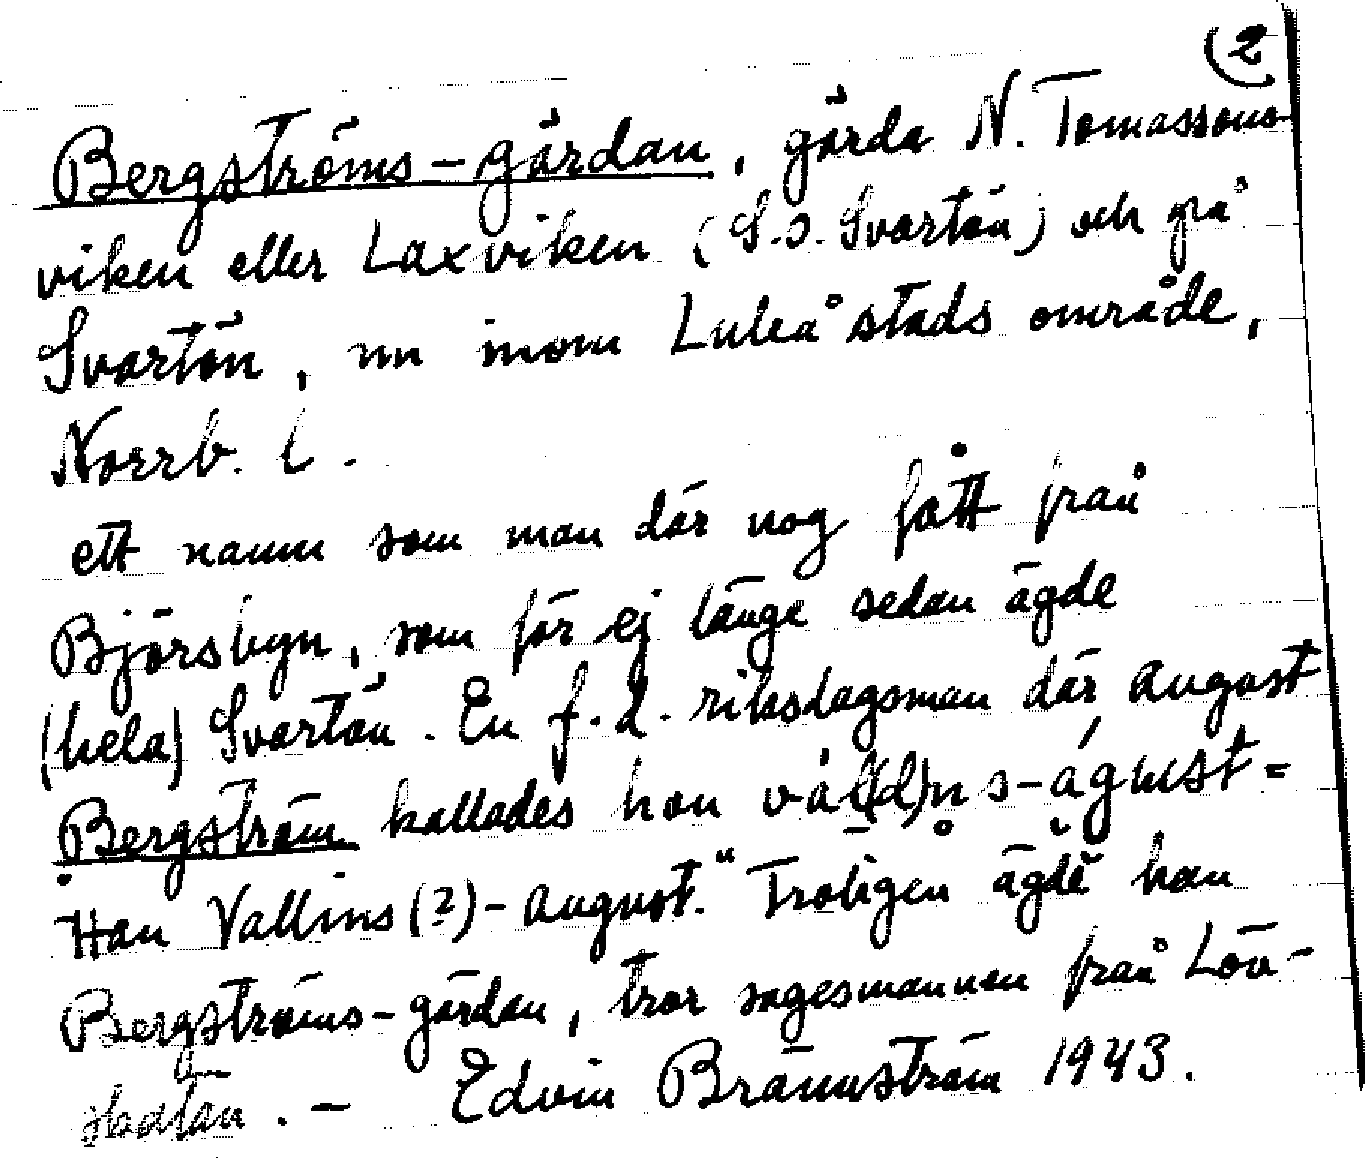 (2
Bergströms-gärdan, gärda N. Tomassons
viken eller Laxviken (S.O. Svartön) och på
Svartön, nu inom Luleå stads område,
Norrb. l.
ett namn som man där nog fått från
Björsbyn, som för ej länge sedan ägde
(hela) Svartön. En f.d. riksdagsman där August
Bergström kallades han vál(d)ns-águst =
Han Vallins(?)-August." Troligen ägde han
Bergströms-gärdan, tror sagesmannen från Löv-
skatan. - Edvin Brännström 1943.